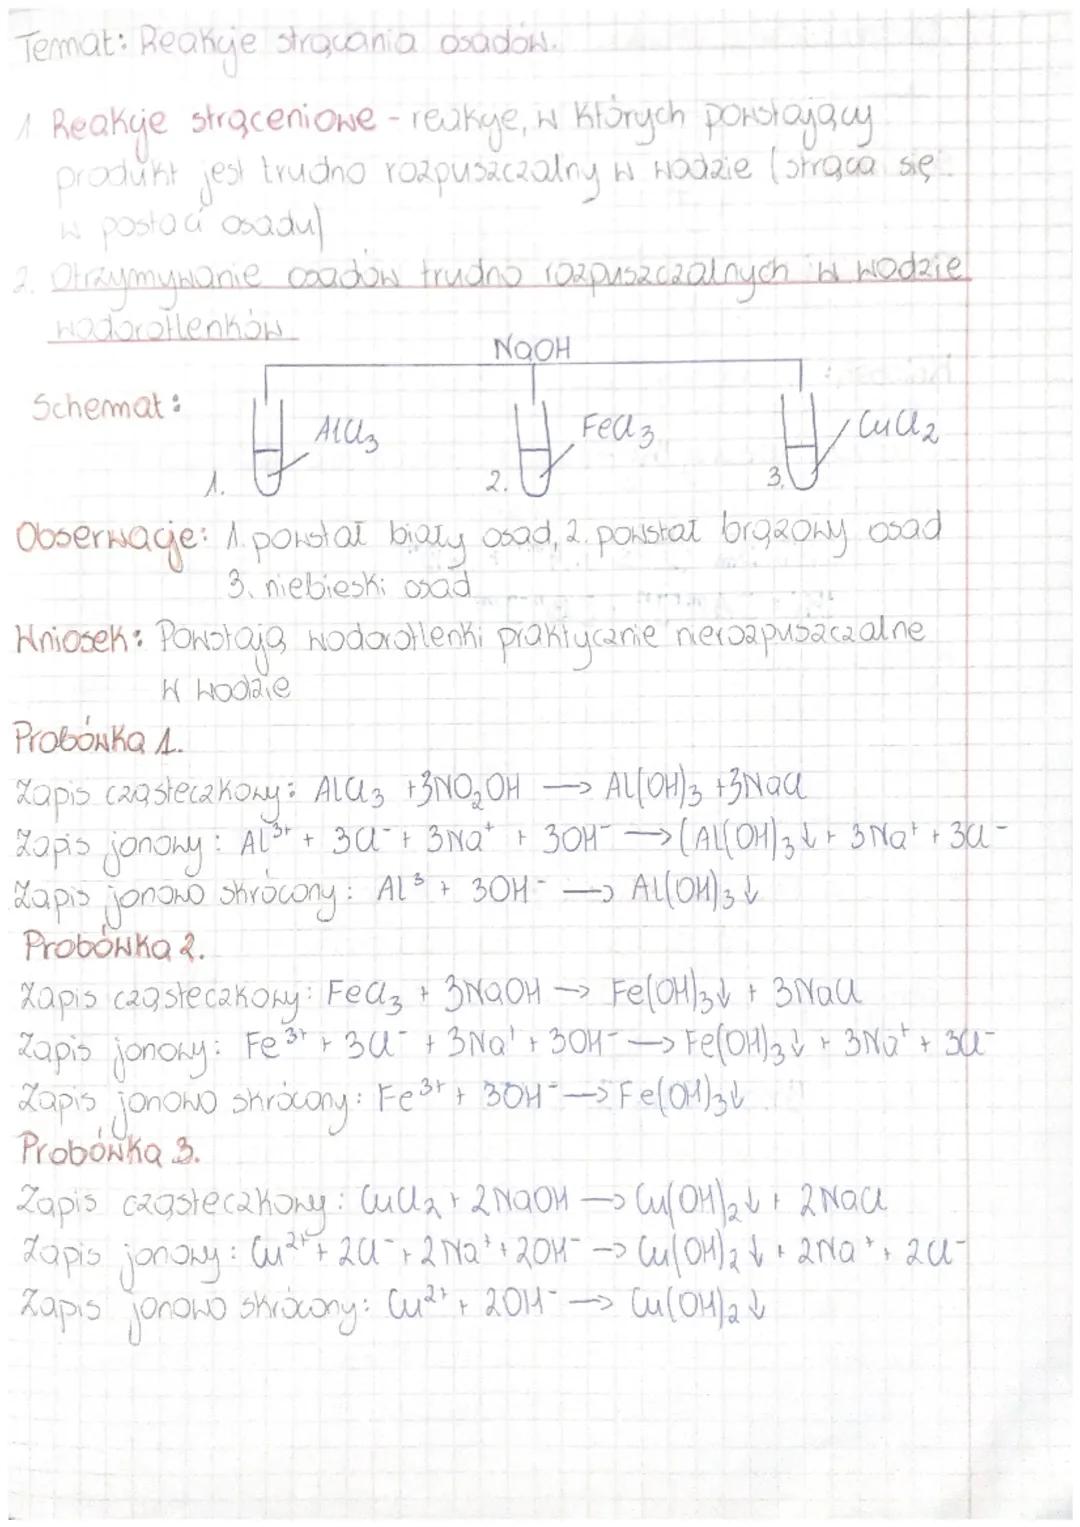 Temat: Reakcje strącania osadów.
1 Reakcje strąceniowe - reakcje, w których powstający
produkt jest trudno rozpuszczalny w wodzie (strąca się
w postaci osadu)
2. Otrzymywanie osadów trudno rozpuszczalnych w wodzie
wodorotlenków
NaOH
Schemat:
AlCl3 FeCl3 CuCl2
1. 2. 3.
Obserwacje: 1. powstał biały osad, 2. powstał brązowy osad
3. niebieski osad
Wniosek: Powstają wodorotlenki praktycznie nierozpuszczalne
w wodzie
Probówka 1.
Zapis cząsteczkowy: AlCl3 +3NO2OH → Al(OH)3 +3NaCl
Zapis jonowy: Al³⁺ + 3Cl⁻ + 3Na⁺ + 3OH⁻ → (Al(OH)3↓ + 3Na⁺ + 3Cl⁻
Zapis jonowo skrócony: Al³ + 3OH⁻ → Al(OH)3↓
Probówka 2.
Zapis cząsteczkowy: FeCl3 + 3NaOH → Fe(OH)3↓ + 3NaCl
Zapis jonowy: Fe³⁺ + 3Cl⁻ + 3Na⁺ + 3OH⁻ → Fe(OH)3↓ + 3Na⁺ + 3Cl⁻
Zapis jonowo skrócony: Fe³⁺ + 3OH⁻ → Fe(OH)3↓
Probówka 3.
Zapis cząsteczkowy: CuCl2 + 2NaOH → Cu(OH)2↓ + 2NaCl
Zapis jonowy: Cu²⁺ + 2Cl⁻ + 2Na⁺ + 2OH⁻ → Cu(OH)2↓ + 2Na⁺ + 2Cl⁻
Zapis jonowo skrócony: Cu²⁺ + 2OH⁻ → Cu(OH)2↓